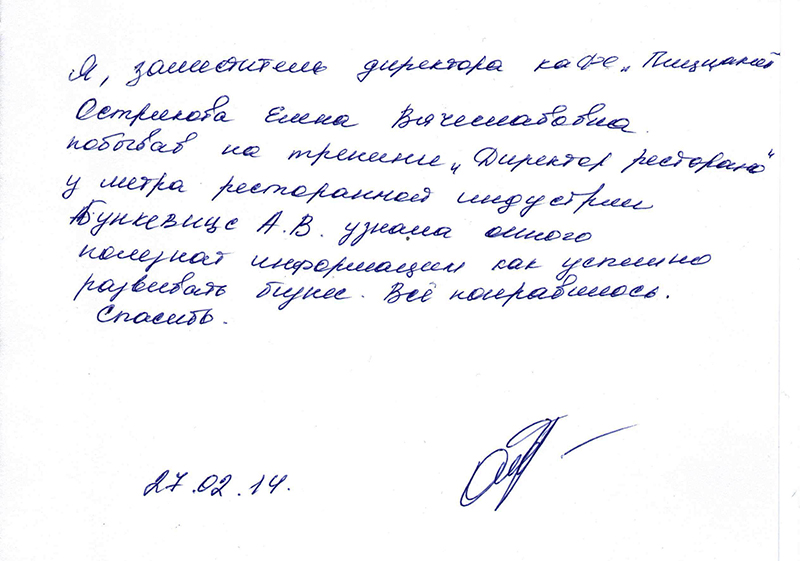 Я, заместитель директора кафе „Пиццамей
Острикова Елена Вячеславовна
побывав на тренинге „Директор ресторана“
у метра ресторанной индустрии
Бункевицс А.В. узнала много
полезной информации как успешно
развивать бизнес. Всё понравилось.
Спасибо.
27.02.14.